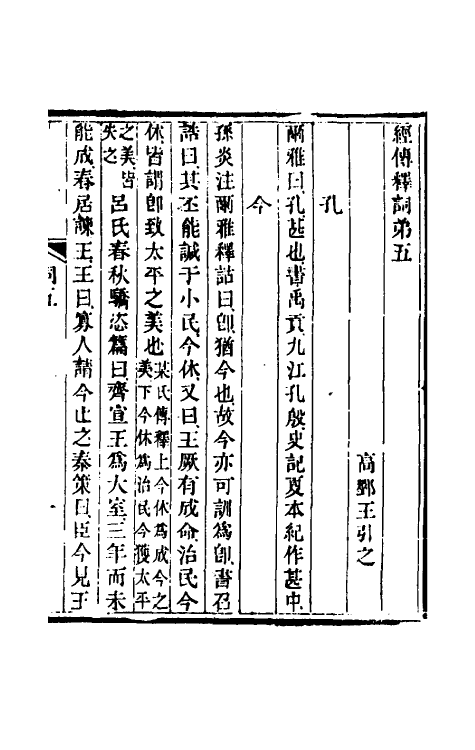 經傳釋詞弟五
高郵王引之
孔
爾雅曰孔甚也書禹貢九江孔殷史記夏本紀作甚中
今
孫炎注爾雅釋詁曰卽猶今也故今亦可訓爲卽書召
誥曰其丕能諴于小民今休又曰王厥有成命治民今
休皆謂卽致太平之美也某氏傳釋上今休爲成今之
美下今休爲治民今獲太平
之美皆
失之
呂氏春秋驕恣篇曰齊宣王爲大室三年而未
能成春居諫王王曰寡人請今止之秦策曰臣今見王
詞五